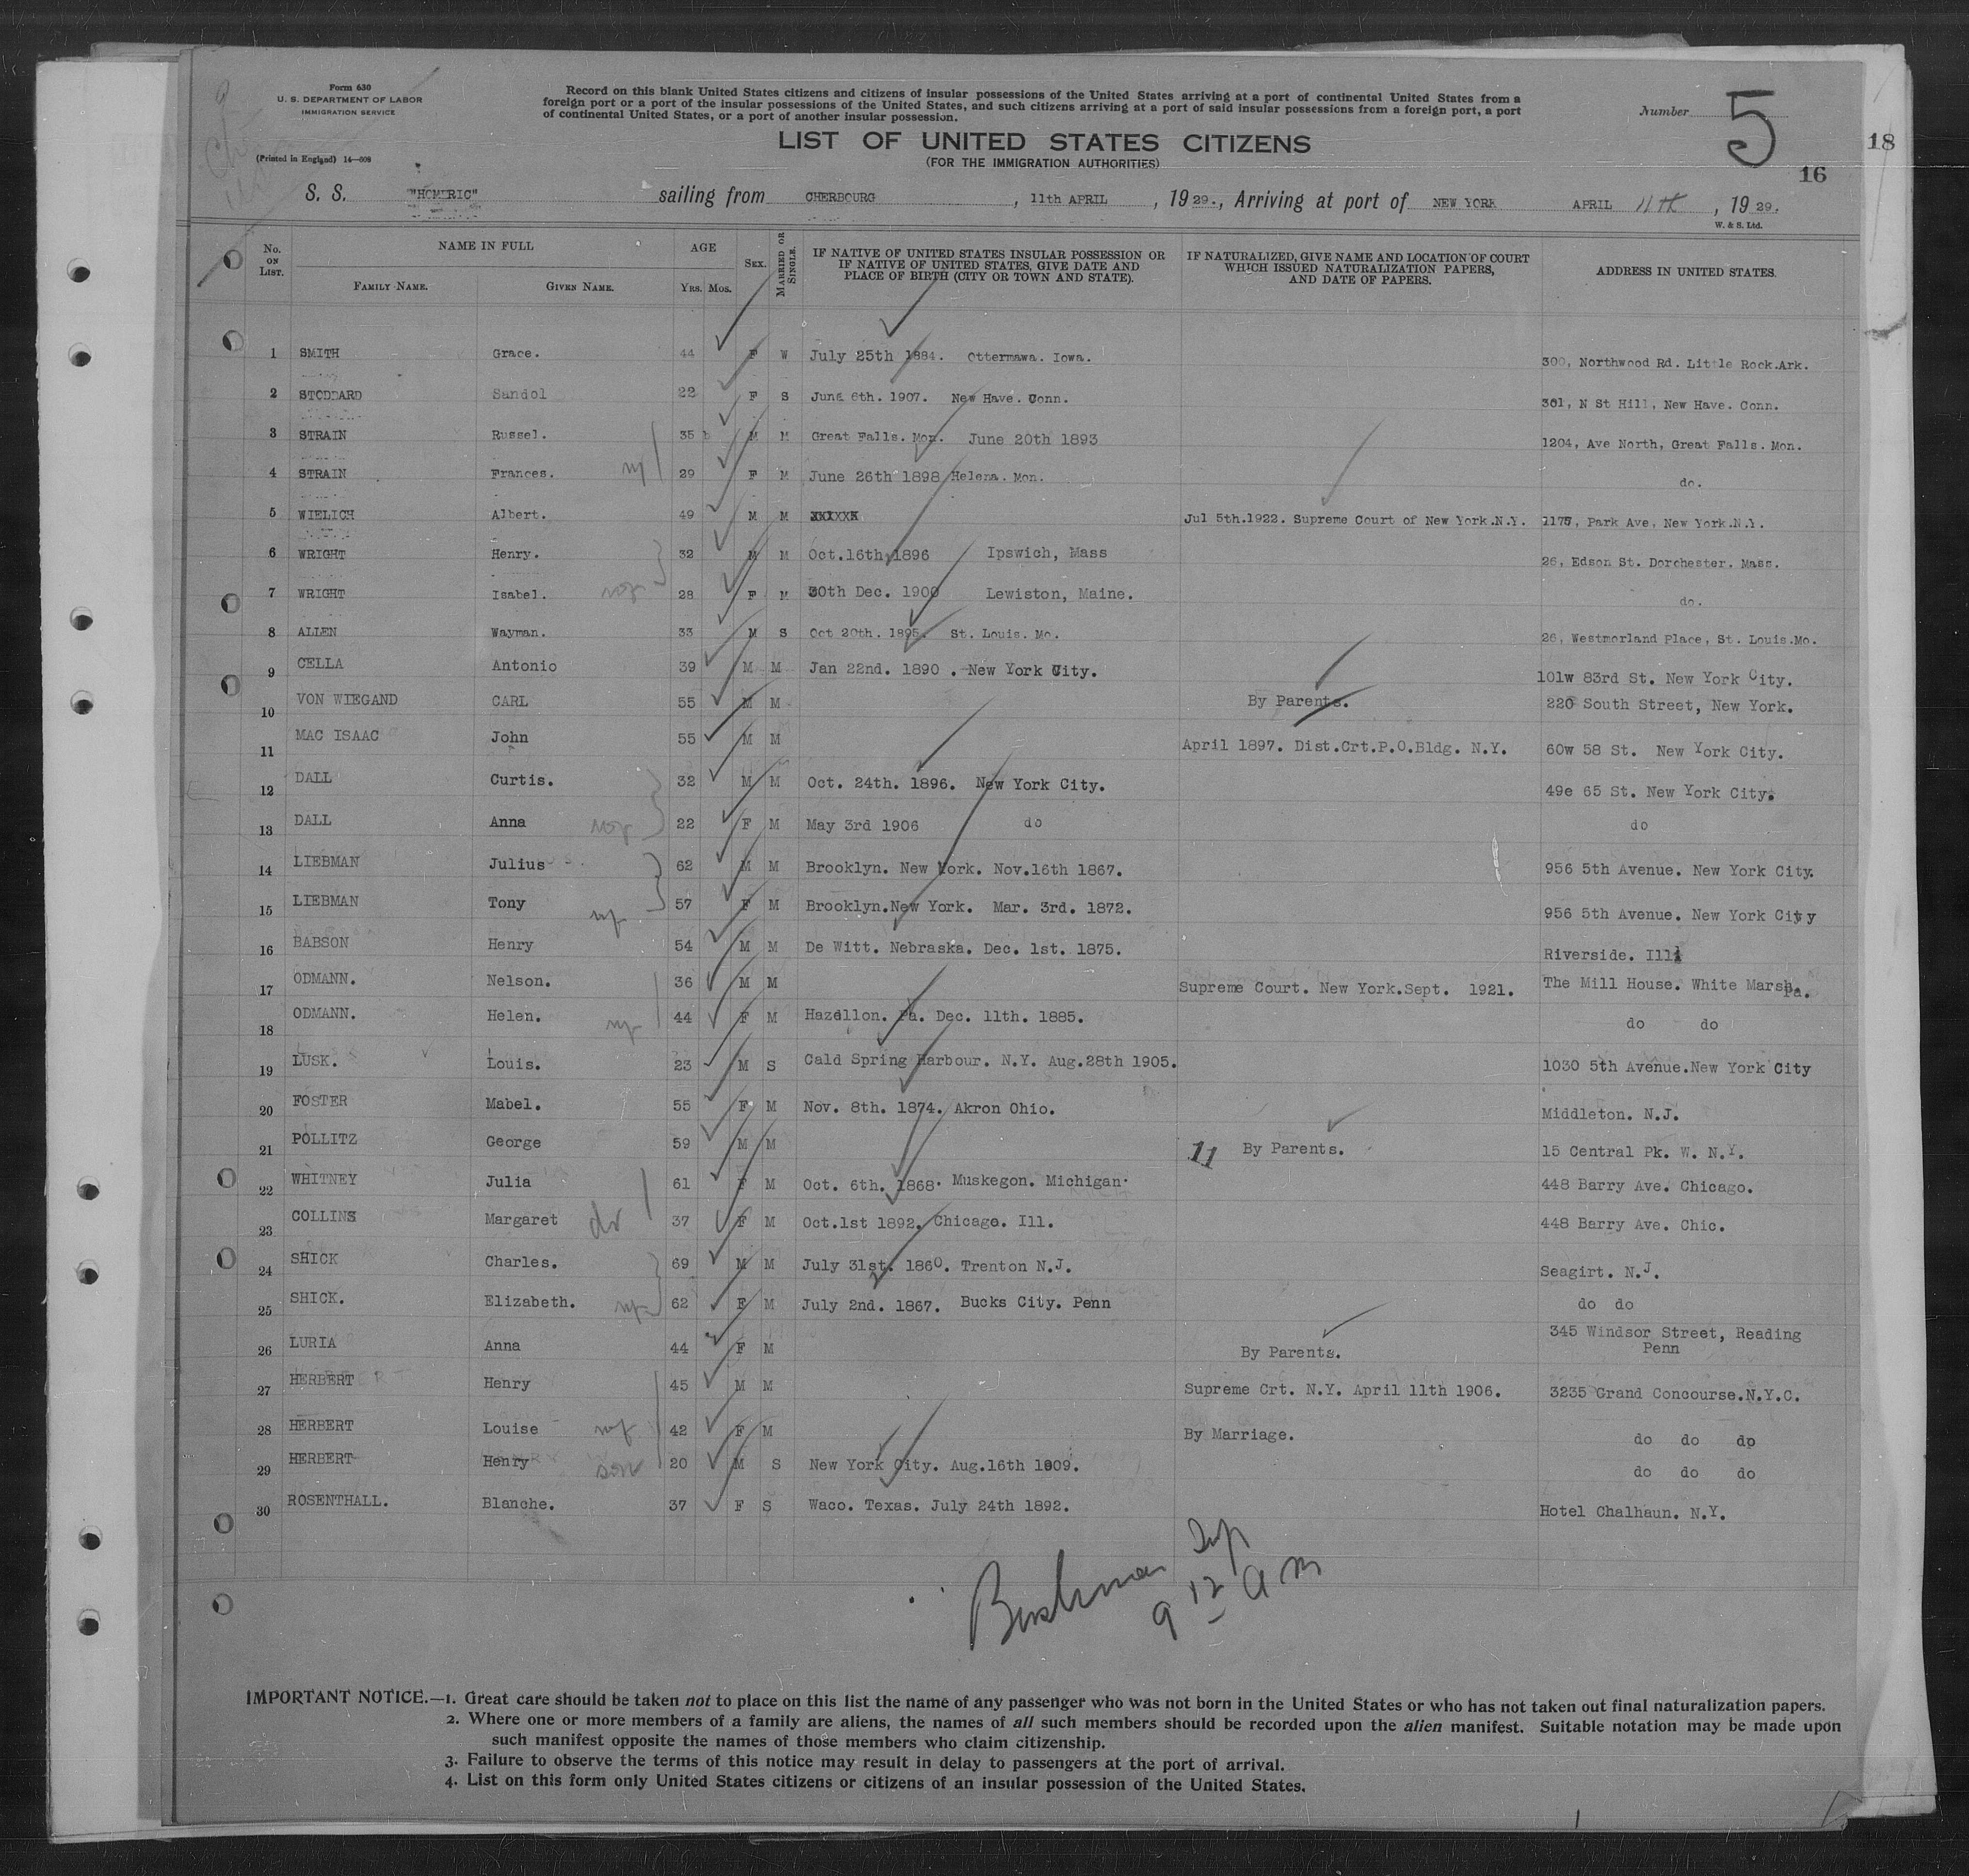 Form 630
U. S. DEPARTMENT OF LABOR
IMMIGRATION SERVICE
(Printed in England) 14—808
Record on this blank United States citizens and citizens of insular possessions of the United States arriving at a port of continental United States from a
foreign port or a port of the insular possessions of the United States, and such citizens arriving at a port of said insular possessions from a foreign port, a port
of continental United States, or a port of another insular possession.
Number 5
18
LIST OF UNITED STATES CITIZENS
(FOR THE IMMIGRATION AUTHORITIES)
16
S. S. "HOMERIC" sailing from CHERBOURG, 11th APRIL, 1929., Arriving at port of NEW YORK APRIL 11th, 1929.
W. & S. Ltd.
No. ON LIST. NAME IN FULL AGE SEX. MARRIED OR SINGLE. IF NATIVE OF UNITED STATES INSULAR POSSESSION OR IF NATIVE OF UNITED STATES, GIVE DATE AND PLACE OF BIRTH (CITY OR TOWN AND STATE). IF NATURALIZED, GIVE NAME AND LOCATION OF COURT WHICH ISSUED NATURALIZATION PAPERS, AND DATE OF PAPERS. ADDRESS IN UNITED STATES.
FAMILY NAME. GIVEN NAME. YRS. MOS.
1 SMITH Grace. 44 F W July 25th 1884. Ottermawa. Iowa. 300, Northwood Rd. Little Rock.Ark.
2 STODDARD Sandol 22 F S June 6th. 1907. New Have. Conn. 301, N St Hill, New Have. Conn.
3 STRAIN Russel. 35 M M Great Falls. Mon. June 20th 1893 1204, Ave North, Great Falls. Mon.
4 STRAIN Frances. 29 F M June 26th 1898 Helena. Mon. do.
5 WIELICH Albert. 49 M M XXXXXX Jul 5th.1922. Supreme Court of New York.N.Y. 1175, Park Ave, New York.N.Y.
6 WRIGHT Henry. 32 M M Oct.16th,1896 Ipswich, Mass 26, Edson St. Dorchester. Mass.
7 WRIGHT Isabel. 28 F M 30th Dec. 1900 Lewiston, Maine. do.
8 ALLEN Wayman. 33 M S Oct 20th. 1895. St. Louis. Mo. 26, Westmorland Place, St. Louis.Mo.
9 CELLA Antonio 39 M M Jan 22nd. 1890 . New York City. 101w 83rd St. New York City.
10 VON WIEGAND CARL 55 M M By Parents. 220 South Street, New York.
11 MAC ISAAC John 55 M M April 1897. Dist.Crt.P.O.Bldg. N.Y. 60w 58 St. New York City.
12 DALL Curtis. 32 M M Oct. 24th. 1896. New York City. 49e 65 St. New York City.
13 DALL Anna 22 F M May 3rd 1906 do do
14 LIEBMAN Julius 62 M M Brooklyn. New York. Nov.16th 1867. 956 5th Avenue. New York City.
15 LIEBMAN Tony 57 F M Brooklyn.New York. Mar. 3rd. 1872. 956 5th Avenue. New York City
16 BABSON Henry 54 M M De Witt. Nebraska. Dec. 1st. 1875. Riverside. Ill
17 ODMANN. Nelson. 36 M M Supreme Court. New York.Sept. 1921. The Mill House. White Marsh. Pa.
18 ODMANN. Helen. 44 F M Hazellon. Pa. Dec. 11th. 1885. do do
19 LUSK. Louis. 23 M S Cald Spring Harbour. N.Y. Aug.28th 1905. 1030 5th Avenue.New York City
20 FOSTER Mabel. 55 F M Nov. 8th. 1874. Akron Ohio. Middleton. N.J.
21 POLLITZ George 59 M M 11 By Parents. 15 Central Pk. W. N.Y.
22 WHITNEY Julia 61 F M Oct. 6th. 1868. Muskegon. Michigan. 448 Barry Ave. Chicago.
23 COLLINS Margaret dr 37 F M Oct.1st 1892. Chicago. Ill. 448 Barry Ave. Chic.
24 SHICK Charles. 69 M M July 31st. 1860. Trenton N.J. Seagirt. N.J.
25 SHICK. Elizabeth. 62 F M July 2nd. 1867. Bucks City. Penn do do
26 LURIA Anna 44 F M By Parents. 345 Windsor Street, Reading Penn
27 HERBERT Henry 45 M M Supreme Crt. N.Y. April 11th 1906. 3235 Grand Concourse.N.Y.C.
28 HERBERT Louise 42 F M By Marriage. do do do
29 HERBERT Henry son 20 M S New York City. Aug.16th 1909. do do do
30 ROSENTHALL. Blanche. 37 F S Waco. Texas. July 24th 1892. Hotel Chalhaun. N.Y.
9 12 AM
IMPORTANT NOTICE.—1. Great care should be taken not to place on this list the name of any passenger who was not born in the United States or who has not taken out final naturalization papers.
2. Where one or more members of a family are aliens, the names of all such members should be recorded upon the alien manifest. Suitable notation may be made upon
such manifest opposite the names of those members who claim citizenship.
3. Failure to observe the terms of this notice may result in delay to passengers at the port of arrival.
4. List on this form only United States citizens or citizens of an insular possession of the United States.